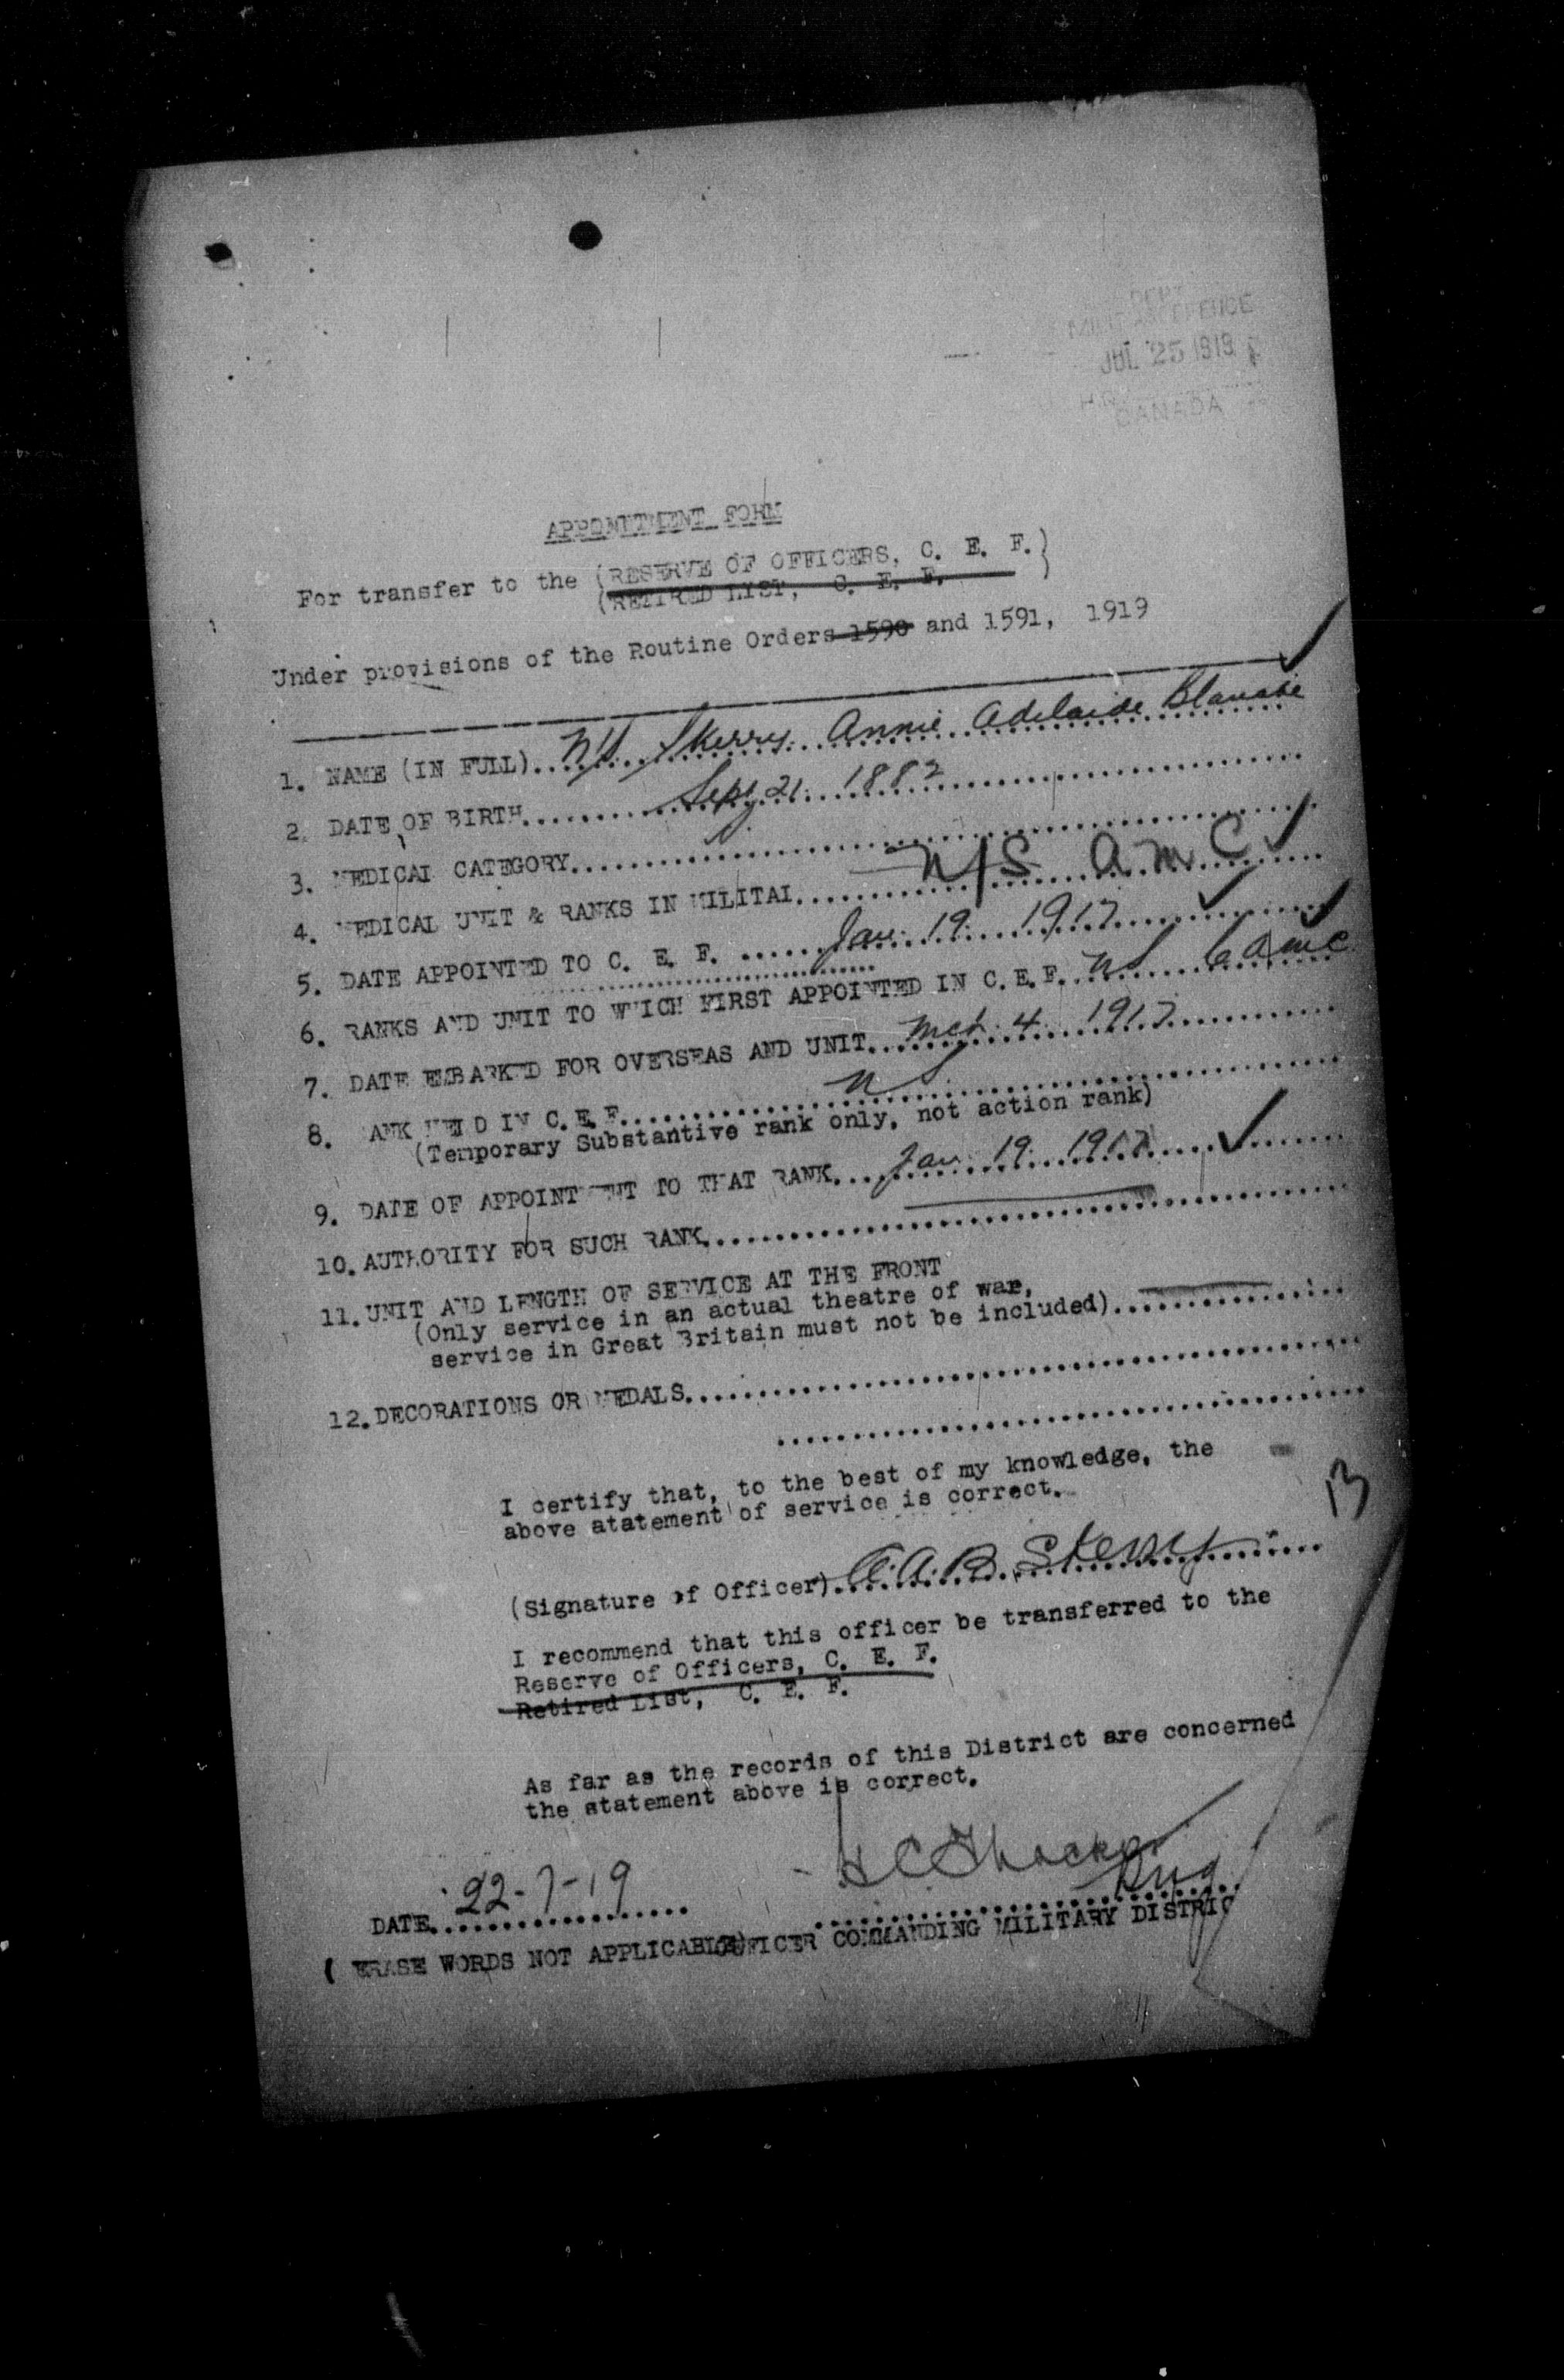 DEPT
MILITIA & DEFENCE
JUL 25 1919
H.Q.
CANADA
APPOINTMENT FORM
For transfer to the (RESERVE OF OFFICERS, C. E. F.)
(RETIRED LIST, C. E. F.
Under provisions of the Routine Orders 1590 and 1591, 1919
1. NAME (IN FULL)..N/S Skerry Annie Adelaide Blanche
2. DATE OF BIRTH........Sept 21 1882
3. MEDICAL CATEGORY........
4. MEDICAL UNIT & RANKS IN MILITAI........N/S A.M.C
5. DATE APPOINTED TO C. E. F. ......Jan 19 1917
6. RANKS AND UNIT TO WHICH FIRST APPOINTED IN C.E.F. NS CAMC
7. DATE EMBARKED FOR OVERSEAS AND UNIT..Mch 4 1917
8. RANK HELD IN C.E.F........NS
(Temporary Substantive rank only, not action rank)
9. DATE OF APPOINTMENT TO THAT RANK....Jan 19 1917
10. AUTHORITY FOR SUCH RANK........
11. UNIT AND LENGTH OF SERVICE AT THE FRONT
(Only service in an actual theatre of war,
service in Great Britain must not be included)........
12. DECORATIONS OR MEDALS........
I certify that, to the best of my knowledge, the
above atatement of service is correct.
13
(Signature of Officer)..A.A.B. Skerry
I recommend that this officer be transferred to the
Reserve of Officers, C. E. F.
Retired List, C. E. F.
As far as the records of this District are concerned
the statement above is correct.
H C Thacker
DATE..22-7-19
( ERASE WORDS NOT APPLICABLE) OFFICER COMMANDING MILITARY DISTRIC